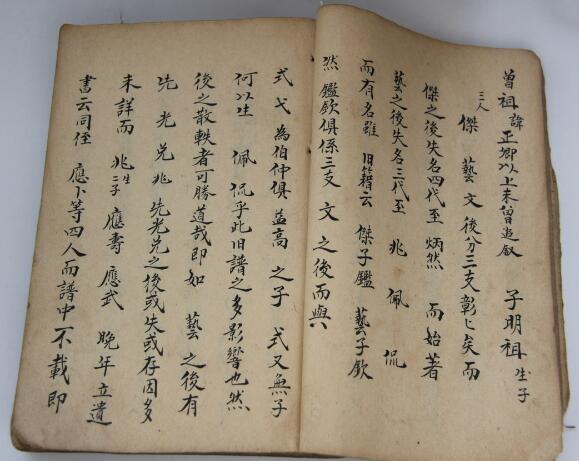 曾祖諱正卿以上未曾追敘 子明祖生子
三人 傑 藝 文後分三支彰〻矣而
傑之後失名四代至 炳然 而始著
藝之後失名三代至 兆 佩 侃
而有名雖 旧籍云 傑子鑑 藝子欽
然 鑑欽俱係三支 文 之後而與
式 弋 為伯仲俱 益高 之子 式又無子
何以生 佩 侃乎此旧譜之多影響也然
後之散軼者可勝道哉即如 藝 之後有
先 光 兑 兆 先光兑之後或失或存因多
未詳而 兆生二子 應壽 應武 晚年立遺
書云同侄 應卜等四人而譜中不載即